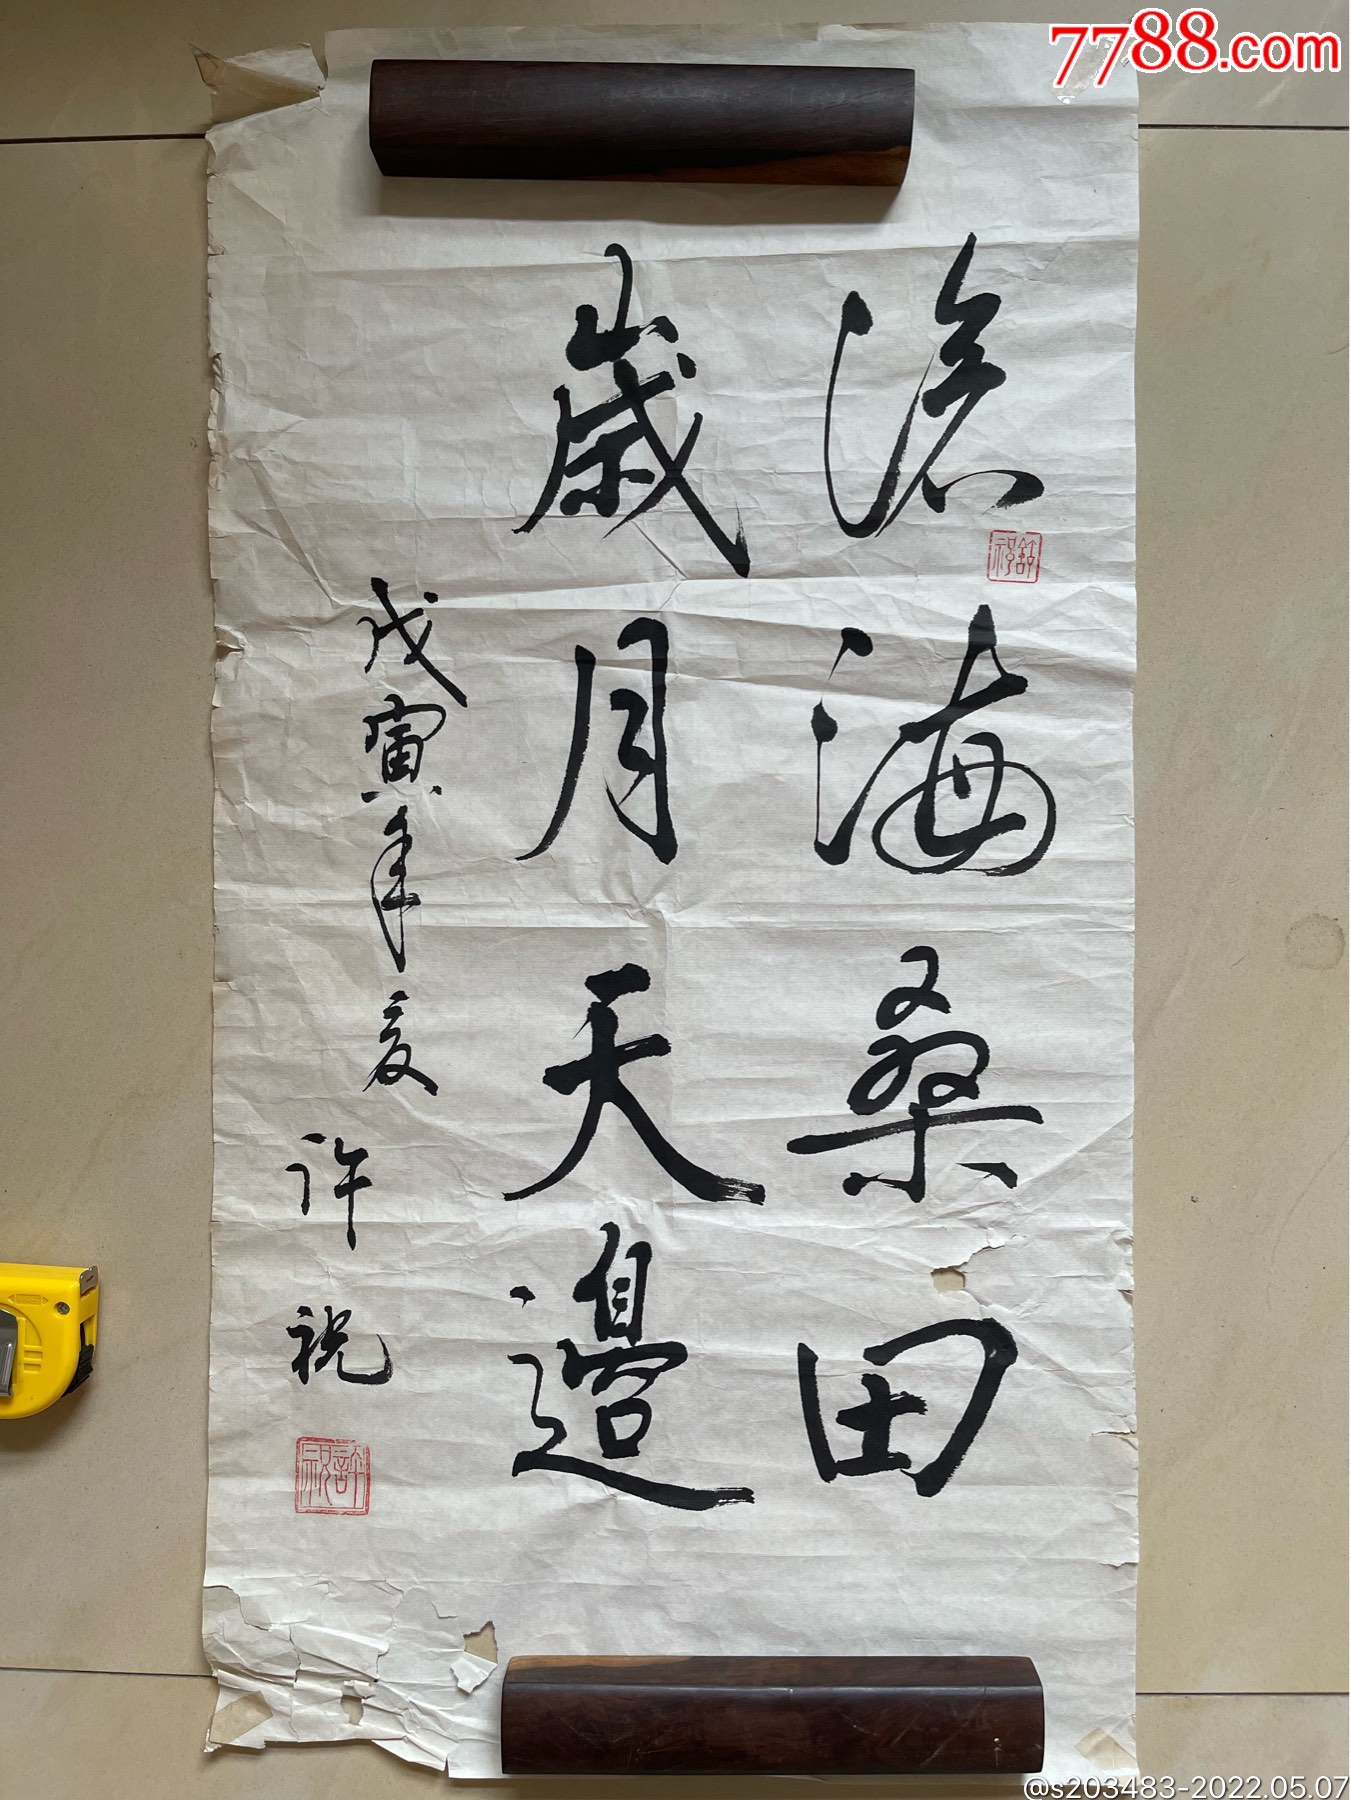 7788.com
滄海桑田
歲月天邊
戊寅年夏
许祝
@s203483-2022.05.07